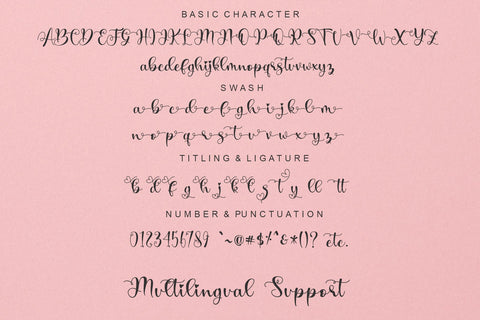 BASIC CHARACTER
ABCDEFGHIJKLMNOPQRSTUVWXYZ
abcdefghijklmnopqrstuvwxyz
SWASH
abcdefghijklm
nopqrstuvwxyz
TITLING & LIGATURE
b d f g h j k l s t y ll tt
NUMBER & PUNCTUATION
0123456789 `~@#$%^&*()? etc.
Multilingual Support